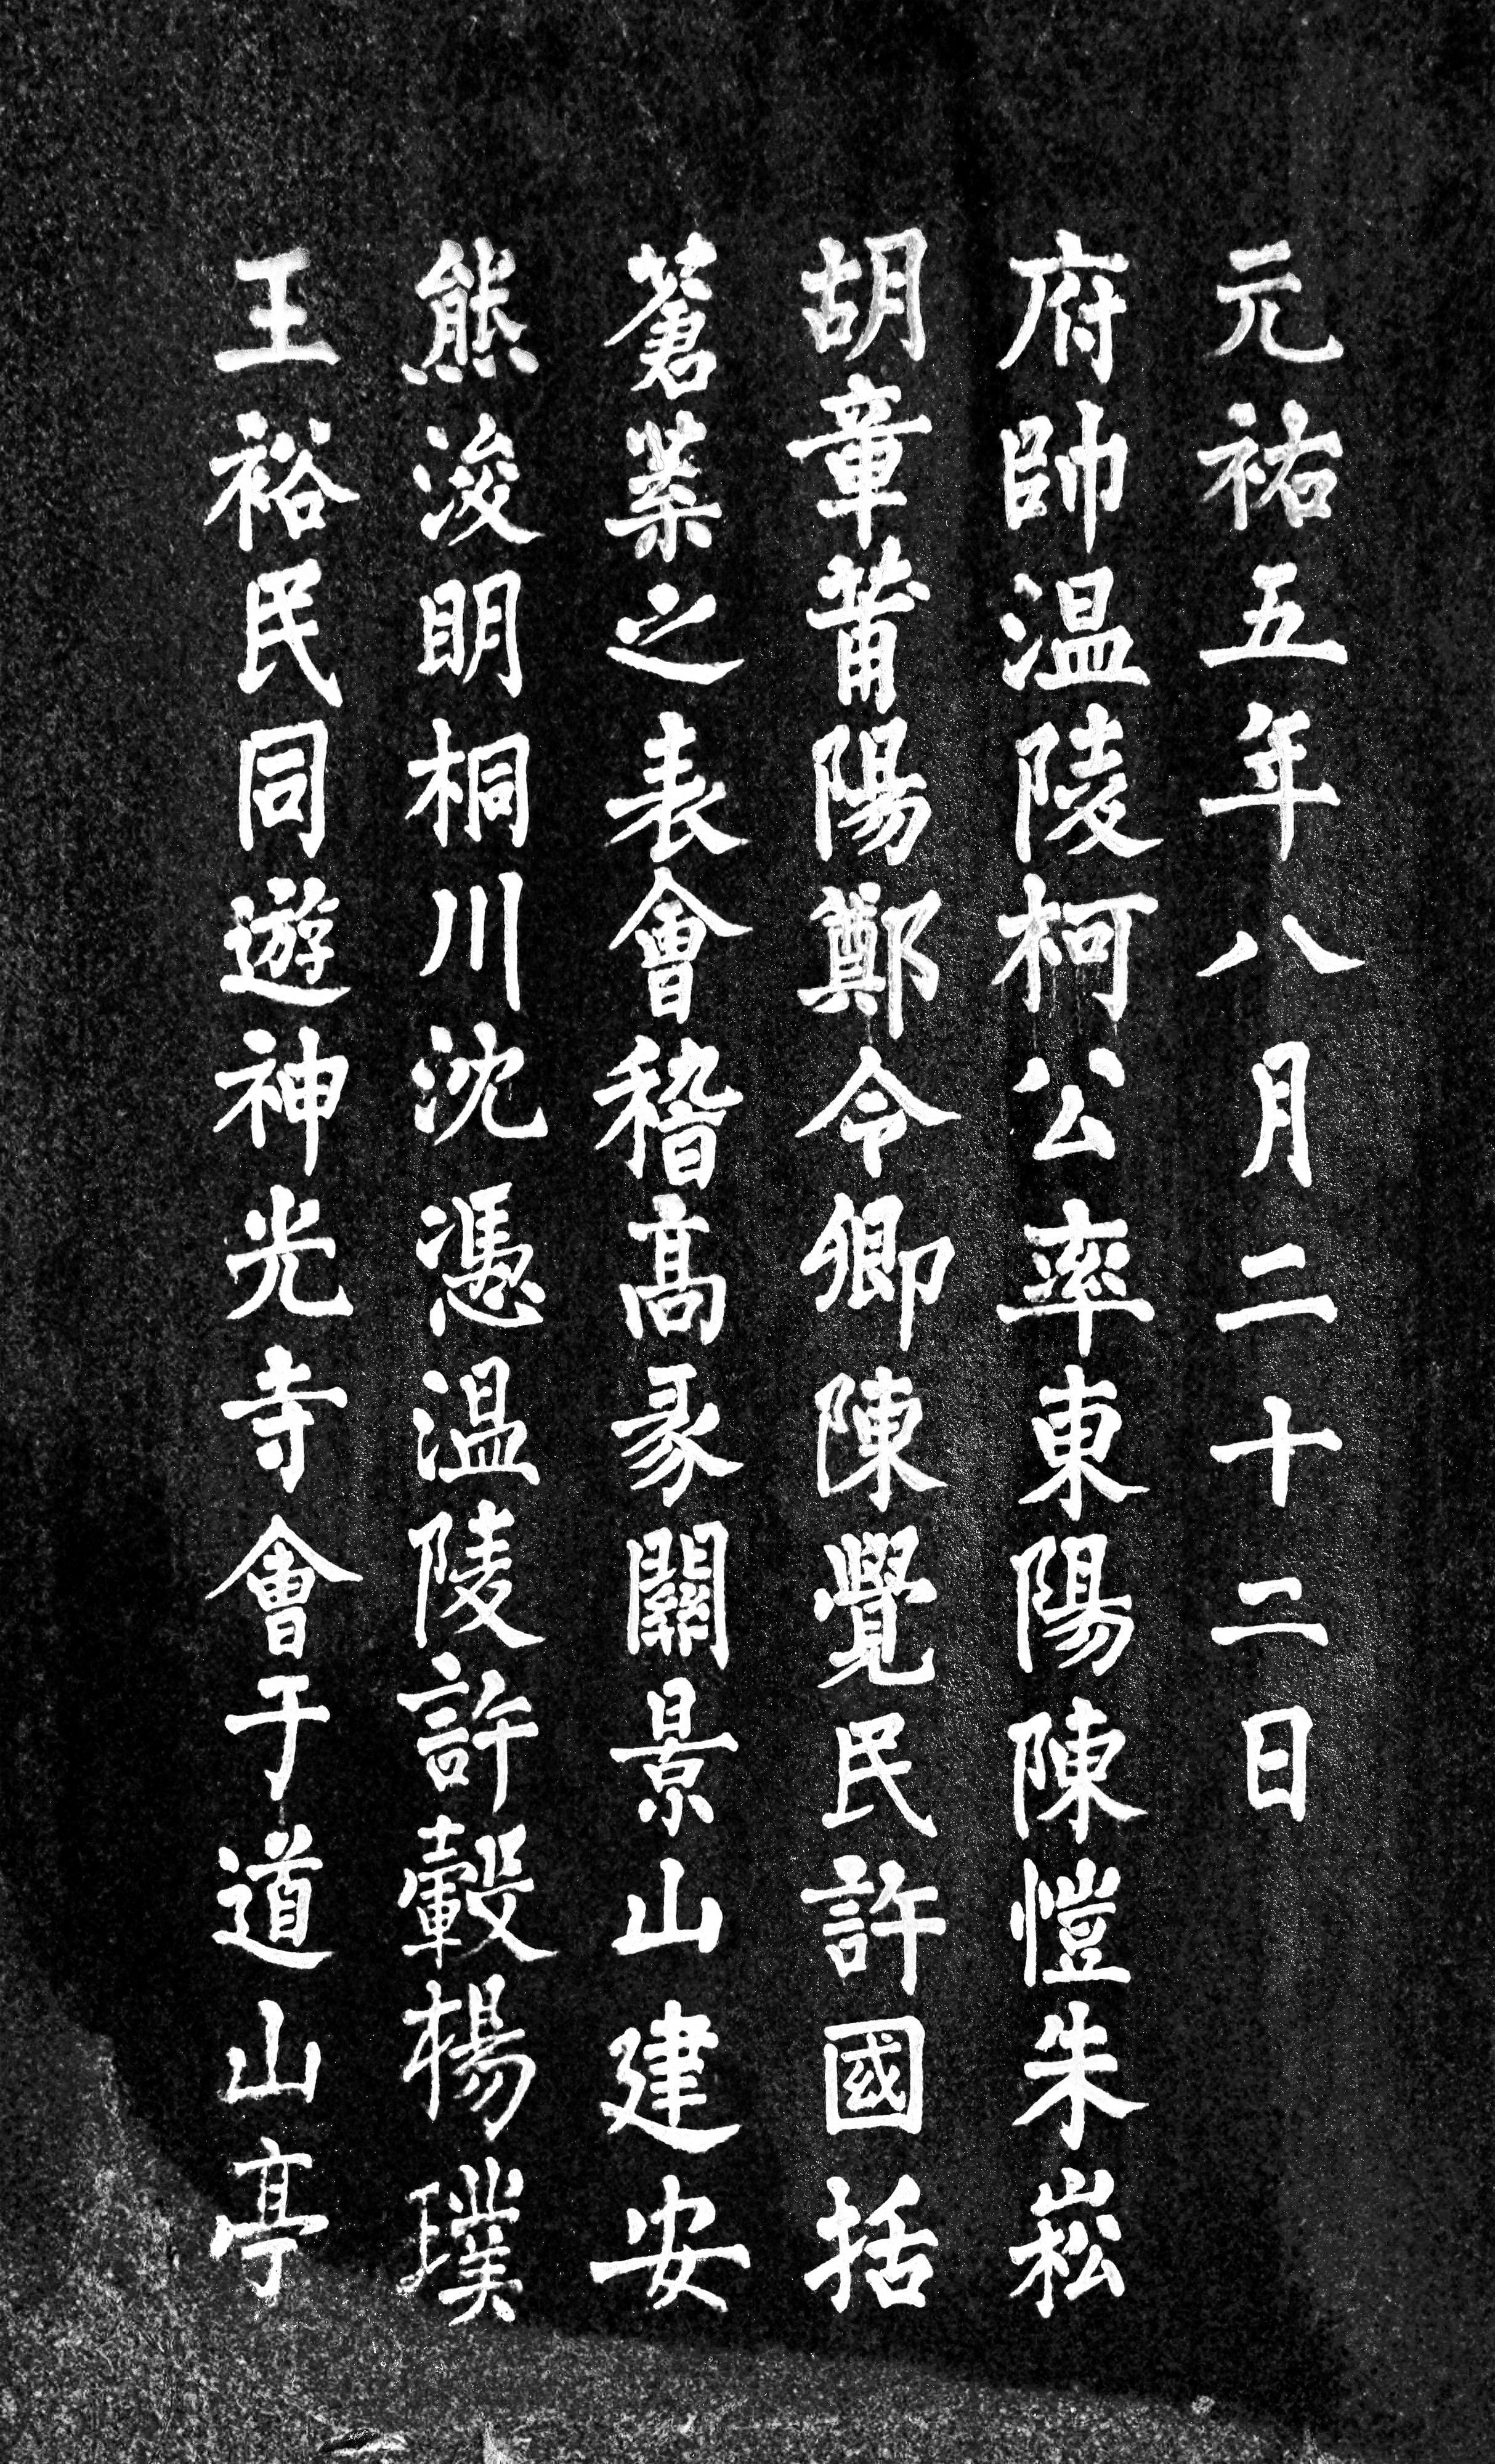 元祐五年八月二十二日
府帥温陵柯公率東陽陳愷朱崧
胡章莆陽鄭令卿陳覺民許國括
蒼葉之表會稽高豖關景山建安
熊浚明桐川沈憑温陵許轂楊璞
王裕民同遊神光寺會于道山亭